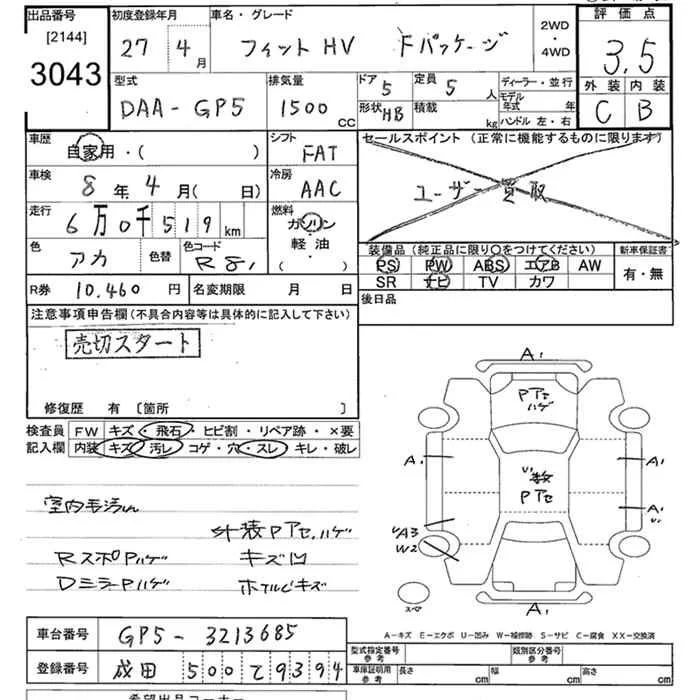 出品番号
[2144]
3043
初度登録年月
27 4月
車名・グレード
フィット HV Fパッケージ
2WD
・
4WD
評価点
3.5
外装 内装
C B
型式
DAA-GP5
排気量
1500 CC
ドア 5
形状 HB
定員 5 人
積載 kg
ディーラー・並行
モデル
年式 年
ハンドル 左・右
車歴
自家用・( )
シフト
FAT
車検
8年 4月( 日)
冷房
AAC
走行
6万0千519km
燃料
ガソリン
軽油
( )
色
アカ
色替
色コード
R81
セールスポイント (正常に機能するものに限ります)
ユーザー買取
装備品(純正品に限り○をつけてください)
PS PW ABS エアB AW
SR ナビ TV カワ
新車保証書
有・無
R券 10.460円
名変期限 月 日
後日品
注意事項申告欄(不具合内容等は具体的に記入して下さい)
売切スタート
修復歴 有 〔箇所 〕
検査員
記入欄
FW キズ・飛石・ヒビ割・リペア跡・×要
内装 キズ・汚レ・コゲ・穴・スレ・キレ・破レ
室内毛汚れ
外装Pアセ.ハゲ
RスポPハゲ
キズ凹
DミラーPハゲ
ホイルキズ
A1
Pアセ
ハゲ
A1
A1
U1数
Pアセ
A1
U1
UA3
W2
スペ
A1
A−キズ E−エクボ U−凹み W−補修跡 S−サビ C−腐食 XX−交換済
車台番号
GP5-3213685
登録番号
成田 500 て9394
型式指定番号
参考
類別区分番号
参考
車庫証明用
参考
長さ cm
幅 cm
高さ cm
希望出品コーナー